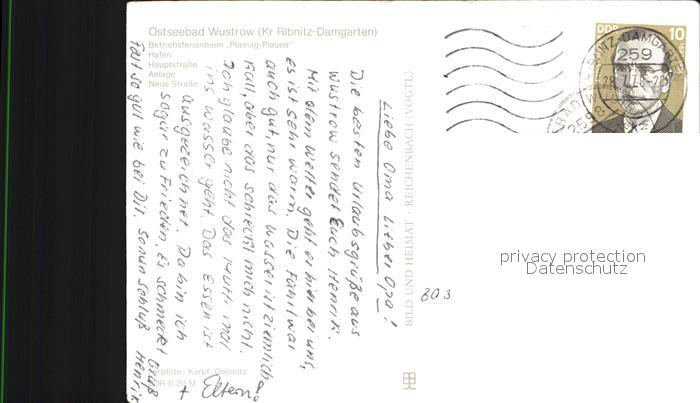 Ostseebad Wustrow (Kr Ribnitz-Damgarten)
Betriebsferienheim „Plamag-Plauen"
Hafen
Hauptstraße
Anlage
Neue Straße
Liebe Oma Lieber Opa!
Die besten Urlaubsgrüße aus
Wustrow sendet Euch Henrik.
Mit dem Wetter geht es hier bei uns,
es ist sehr warm. Die Fahrt war
auch gut, nur das Wasser ist ziemlich
kalt, aber das schreckt mich nicht.
Ich glaube nicht das Mutti mal
ins Wasser geht. Das Essen ist
ausgezeichnet. Da bin ich
sogar zufrieden. Es schmeckt
fast so gut wie bei Dir. Schluß Gruß Henrik
+ Eltern!
Farbfoto: Karpf, Oelsnitz
DDR 0,20 M
BILD UND HEIMAT · REICHENBACH (VOGTL)
803
DDR
10
RIBNITZ-DAMGARTEN
259
2598
privacy protection
Datenschutz